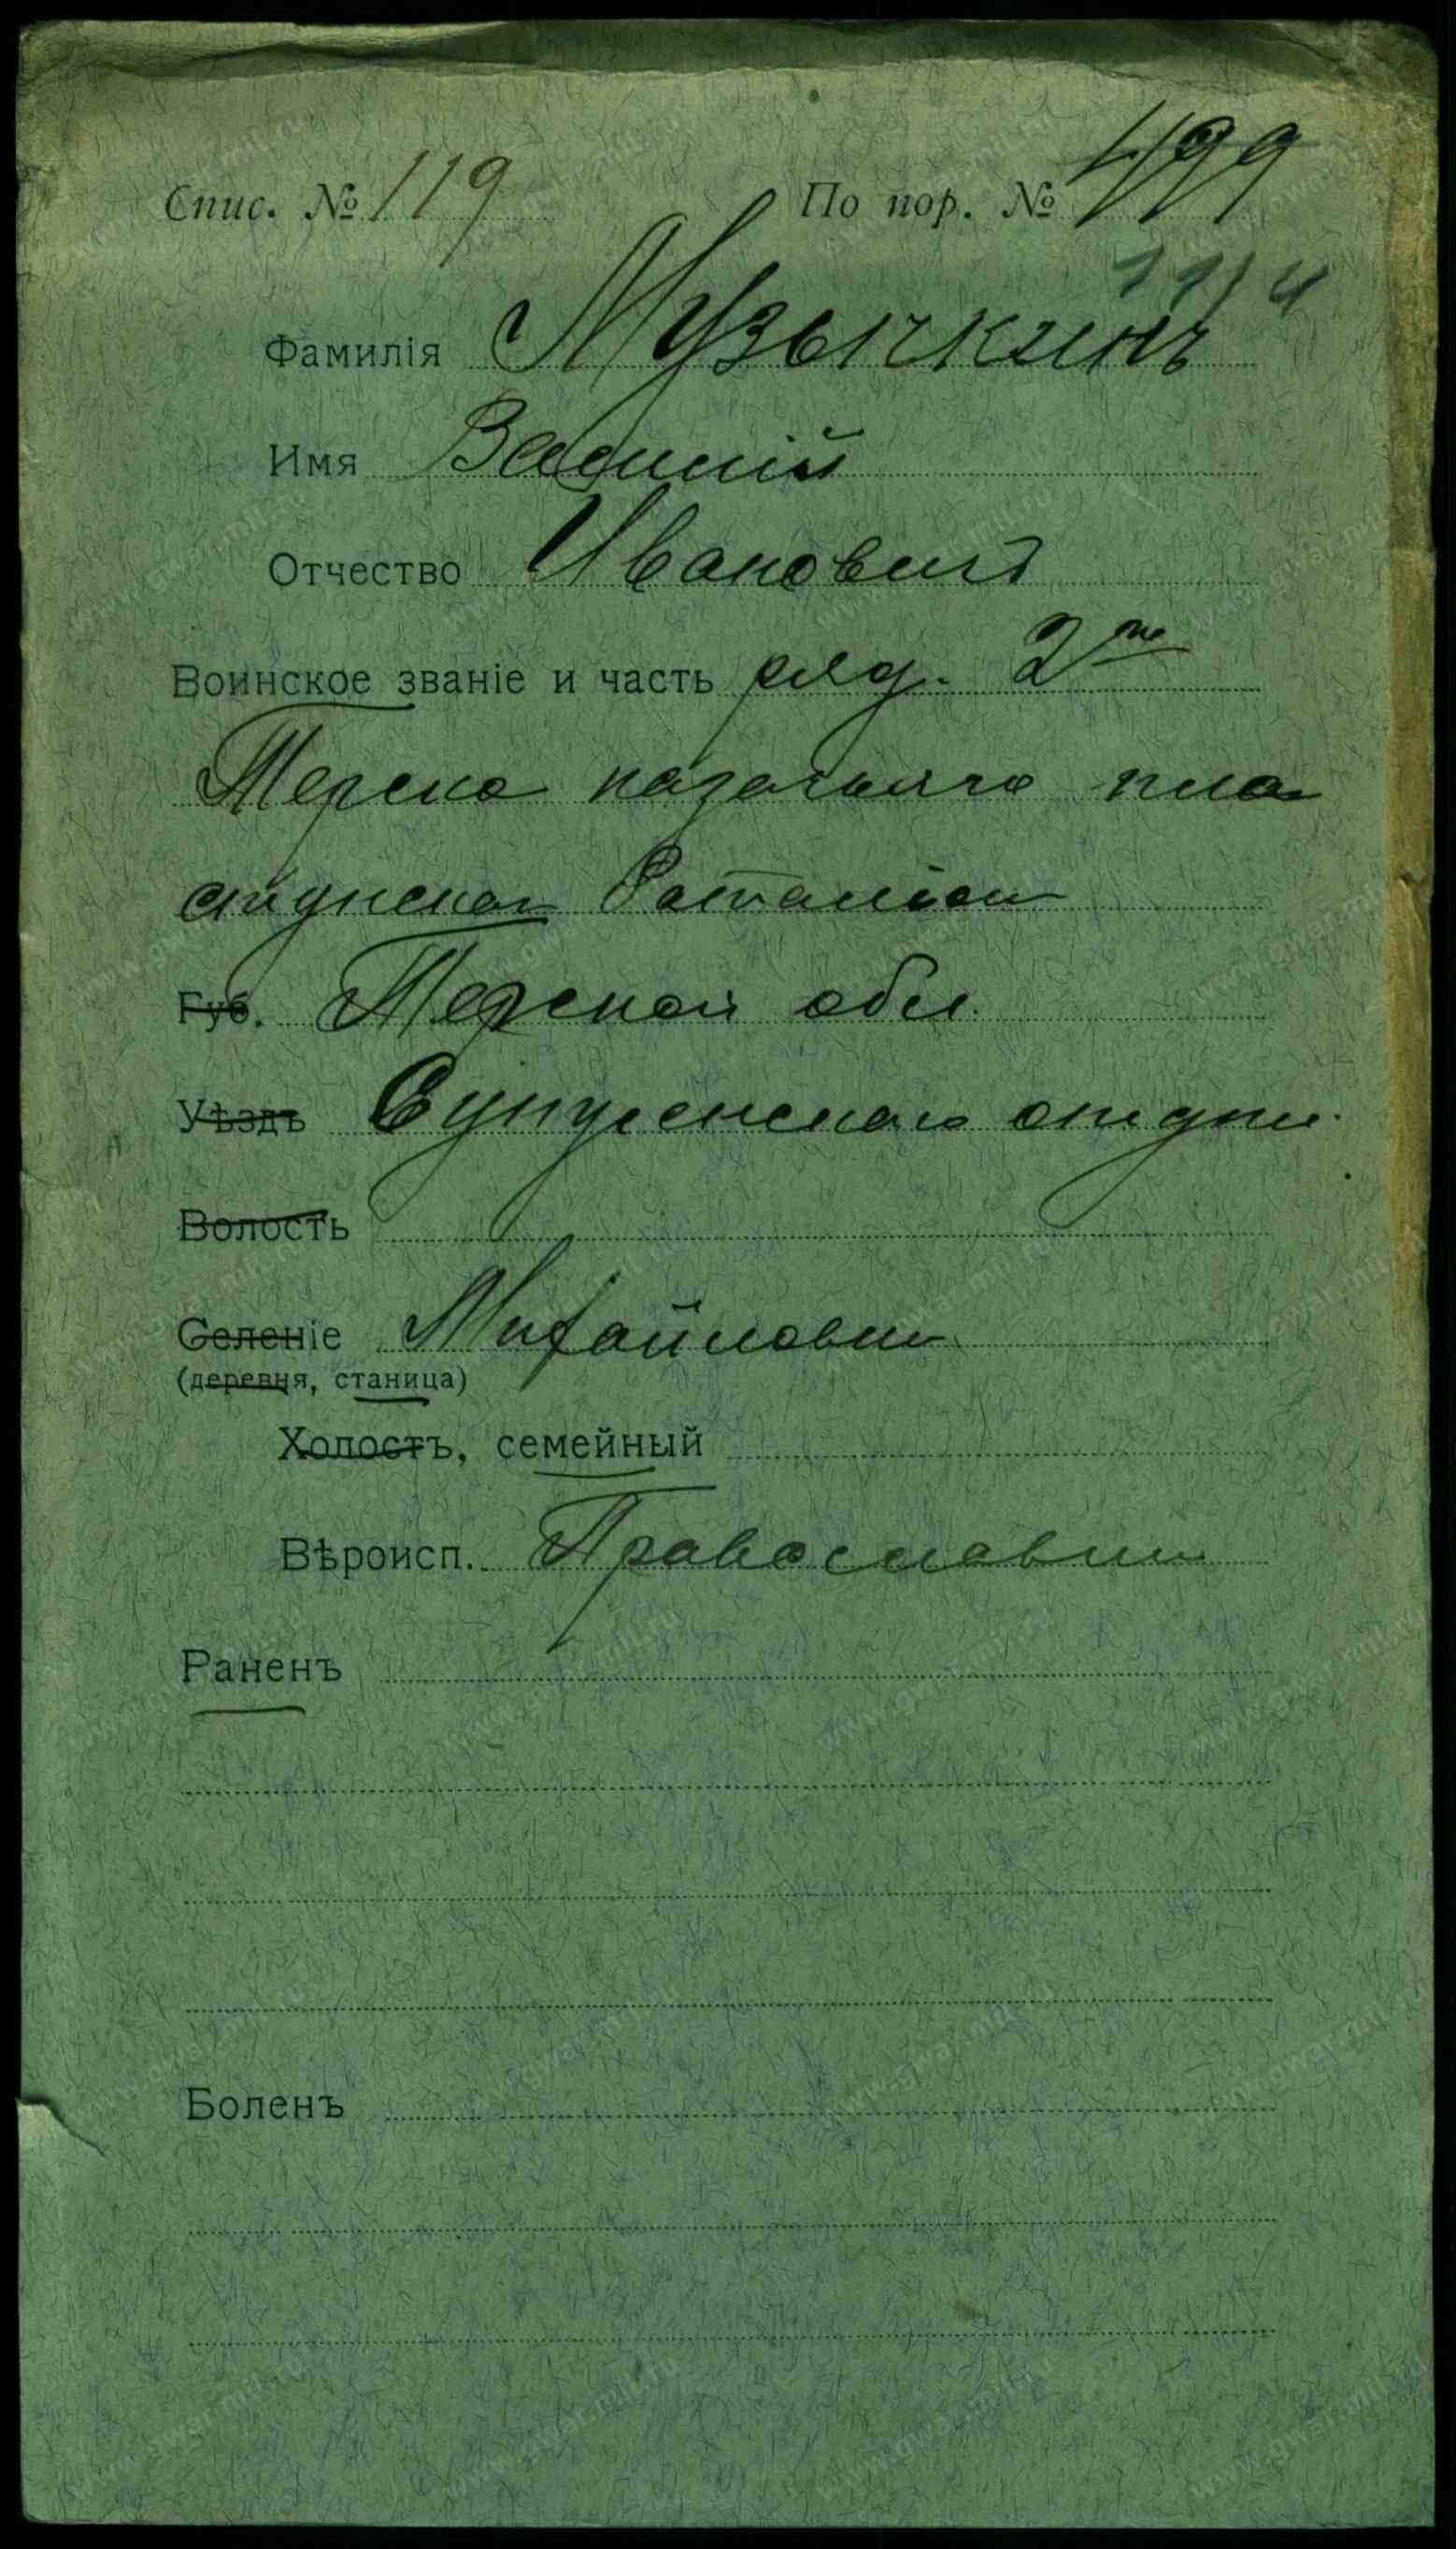 Спис. № 119 По пор. № 499
Фамилія Музычкинъ
Имя Василій
Отчество Ивановичъ
Воинское званіе и часть ряд. 2го
Терско казачьяго пла
стунскаго баталіон
Губ. Терской обл.
Уѣздъ Сунженскаго отдѣл
Волость
Селеніе Михайловск
(деревня, станица)
Холостъ, семейный
Вѣроисп. Православн
Раненъ
Боленъ